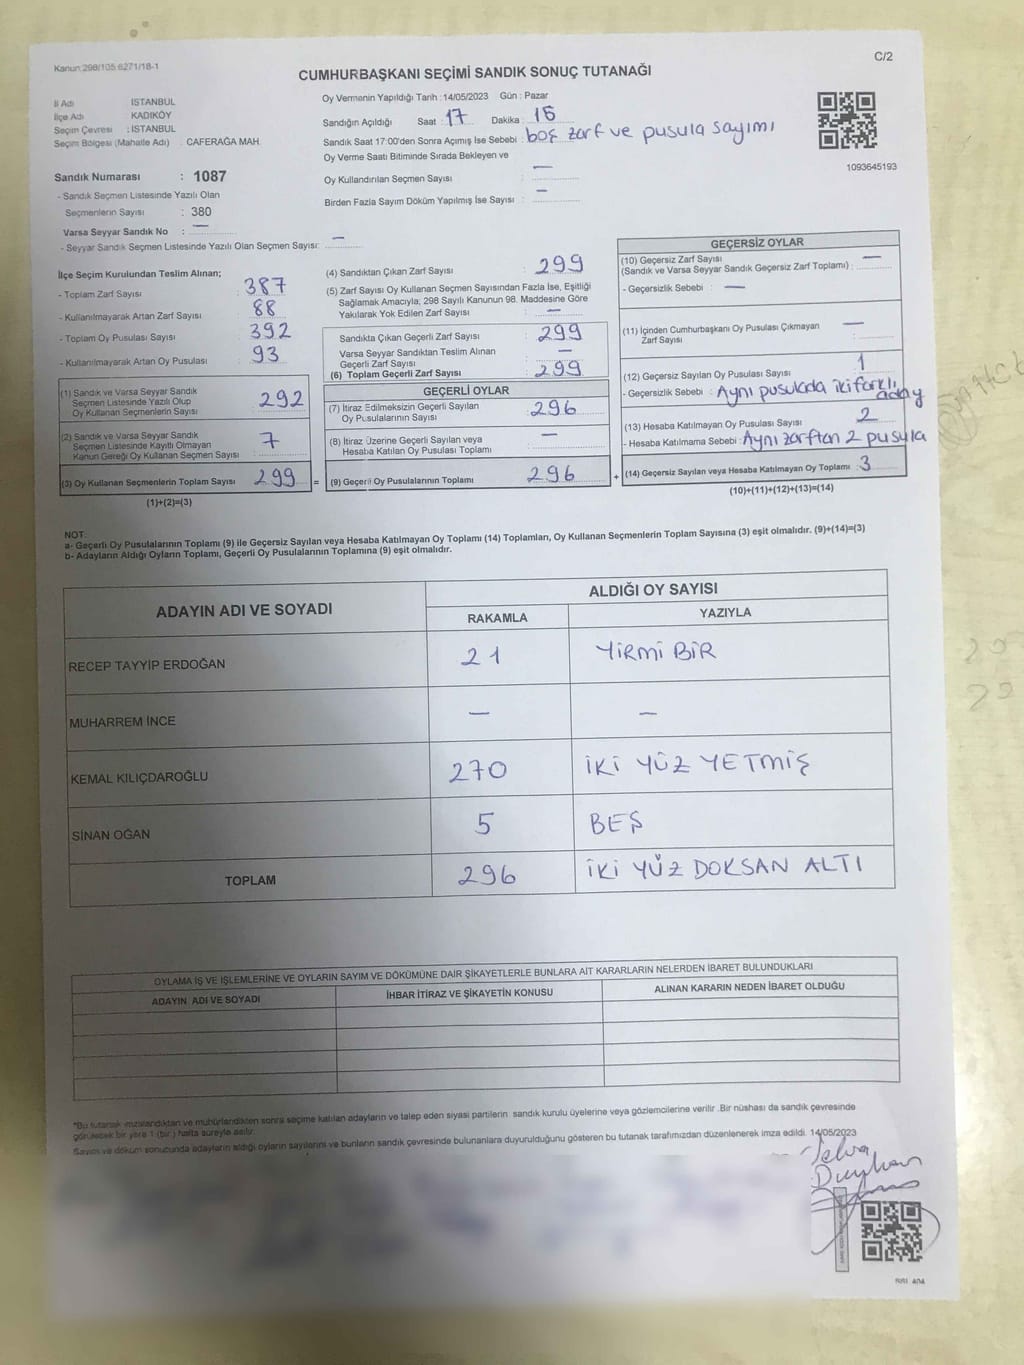 Kanun:298/105 6271/18-1
C/2
CUMHURBAŞKANI SEÇİMİ SANDIK SONUÇ TUTANAĞI
İl Adı İSTANBUL
İlçe Adı KADIKÖY
Seçim Çevresi : İSTANBUL
Seçim Bölgesi (Mahalle Adı) : CAFERAĞA MAH.
Sandık Numarası : 1087
- Sandık Seçmen Listesinde Yazılı Olan
Seçmenlerin Sayısı : 380
Varsa Seyyar Sandık No : —
- Seyyar Sandık Seçmen Listesinde Yazılı Olan Seçmen Sayısı: —
Oy Vermenin Yapıldığı Tarih : 14/05/2023 Gün : Pazar
Sandığın Açıldığı Saat : 17 Dakika : 15
Sandık Saat 17:00'den Sonra Açımış İse Sebebi : boş zarf ve pusula sayımı
Oy Verme Saati Bitiminde Sırada Bekleyen ve
Oy Kullandırılan Seçmen Sayısı : —
Birden Fazla Sayım Döküm Yapılmış İse Sayısı : —
1093645193
İlçe Seçim Kurulundan Teslim Alınan;
- Toplam Zarf Sayısı : 387
- Kullanılmayarak Artan Zarf Sayısı : 88
- Toplam Oy Pusulası Sayısı : 392
- Kullanılmayarak Artan Oy Pusulası : 93
(1) Sandık ve Varsa Seyyar Sandık
Seçmen Listesinde Yazılı Olup
Oy Kullanan Seçmenlerin Sayısı : 292
(2) Sandık ve Varsa Seyyar Sandık
Seçmen Listesinde Kayıtlı Olmayan
Kanun Gereği Oy Kullanan Seçmen Sayısı : 7
(3) Oy Kullanan Seçmenlerin Toplam Sayısı : 299 =
(1)+(2)=(3)
(4) Sandıktan Çıkan Zarf Sayısı : 299
(5) Zarf Sayısı Oy Kullanan Seçmen Sayısından Fazla İse, Eşitliği
Sağlamak Amacıyla; 298 Sayılı Kanunun 98. Maddesine Göre
Yakılarak Yok Edilen Zarf Sayısı : —
Sandıkta Çıkan Geçerli Zarf Sayısı : 299
Varsa Seyyar Sandıktan Teslim Alınan
Geçerli Zarf Sayısı : —
(6) Toplam Geçerli Zarf Sayısı : 299
GEÇERLİ OYLAR
(7) İtiraz Edilmeksizin Geçerli Sayılan
Oy Pusulalarının Sayısı : 296
(8) İtiraz Üzerine Geçerli Sayılan veya
Hesaba Katılan Oy Pusulası Toplamı : —
(9) Geçerli Oy Pusulalarının Toplamı : 296 +
GEÇERSİZ OYLAR
(10) Geçersiz Zarf Sayısı
(Sandık ve Varsa Seyyar Sandık Geçersiz Zarf Toplamı) : —
- Geçersizlik Sebebi : —
(11) İçinden Cumhurbaşkanı Oy Pusulası Çıkmayan
Zarf Sayısı : —
(12) Geçersiz Sayılan Oy Pusulası Sayısı : 1
- Geçersizlik Sebebi : Aynı pusulada iki farklı aday
(13) Hesaba Katılmayan Oy Pusulası Sayısı : 2
- Hesaba Katılmama Sebebi : Aynı zarftan 2 pusula
(14) Geçersiz Sayılan veya Hesaba Katılmayan Oy Toplamı : 3
(10)+(11)+(12)+(13)=(14)
NOT:
a- Geçerli Oy Pusulalarının Toplamı (9) ile Geçersiz Sayılan veya Hesaba Katılmayan Oy Toplamı (14) Toplamları, Oy Kullanan Seçmenlerin Toplam Sayısına (3) eşit olmalıdır. (9)+(14)=(3)
b- Adayların Aldığı Oyların Toplamı, Geçerli Oy Pusulalarının Toplamına (9) eşit olmalıdır.
ADAYIN ADI VE SOYADI ALDIĞI OY SAYISI
RAKAMLA YAZIYLA
RECEP TAYYİP ERDOĞAN 21 YİRMİ BİR
MUHARREM İNCE — —
KEMAL KILIÇDAROĞLU 270 İKİ YÜZ YETMİŞ
SİNAN OĞAN 5 BEŞ
TOPLAM 296 İKİ YÜZ DOKSAN ALTI
OYLAMA İŞ VE İŞLEMLERİNE VE OYLARIN SAYIM VE DÖKÜMÜNE DAİR ŞİKAYETLERLE BUNLARA AİT KARARLARIN NELERDEN İBARET BULUNDUKLARI
ADAYIN ADI VE SOYADI İHBAR İTİRAZ VE ŞİKAYETİN KONUSU ALINAN KARARIN NEDEN İBARET OLDUĞU
*Bu tutanak imzalandıktan ve mühürlendikten sonra seçime katılan adayların ve talep eden siyasi partilerin sandık kurulu üyelerine veya gözlemcilerine verilir .Bir nüshası da sandık çevresinde
görülecek bir yere 1 (bir) hafta süreyle asılır.
Sayım ve döküm sonucunda adayların aldığı oyların sayılarını ve bunların sandık çevresinde bulunanlara duyurulduğunu gösteren bu tutanak tarafımızdan düzenlenerek imza edildi. 14/05/2023
Selva
Duyhan